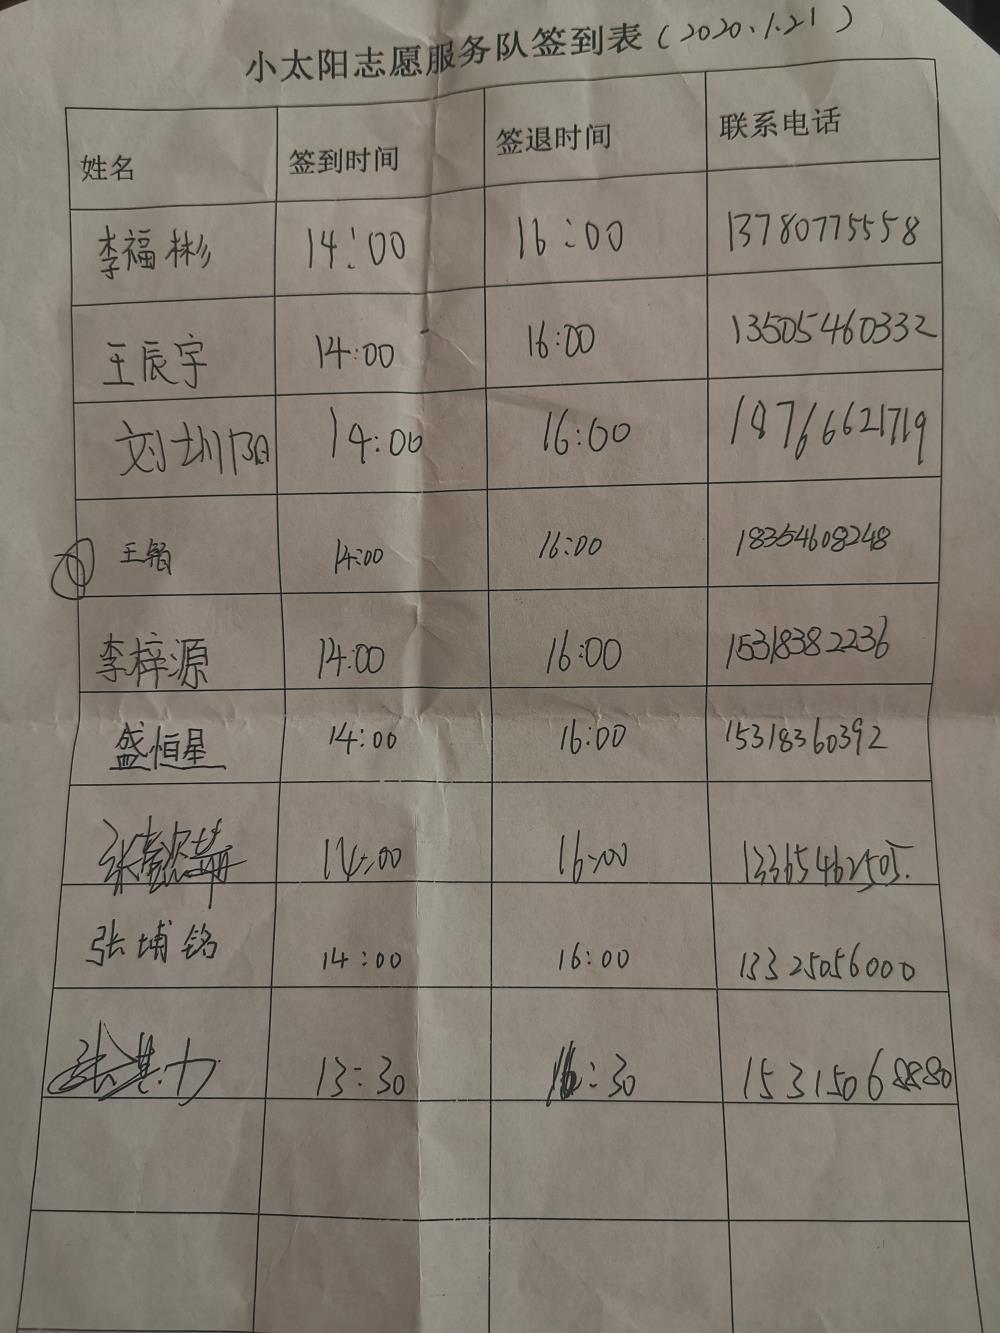 小太阳志愿服务队签到表（2020.1.21）
姓名 签到时间 签退时间 联系电话
李福彬 14:00 16:00 13780775558
王辰宇 14:00 16:00 13505460332
刘圳阳 14:00 16:00 18766621719
王铭 14:00 16:00 18354608248
李梓源 14:00 16:00 15318382236
盛恒星 14:00 16:00 15318360392
14:00 16:00 13365462505.
张埔铭 14:00 16:00 13325056000
13:30 16:30 15315068880